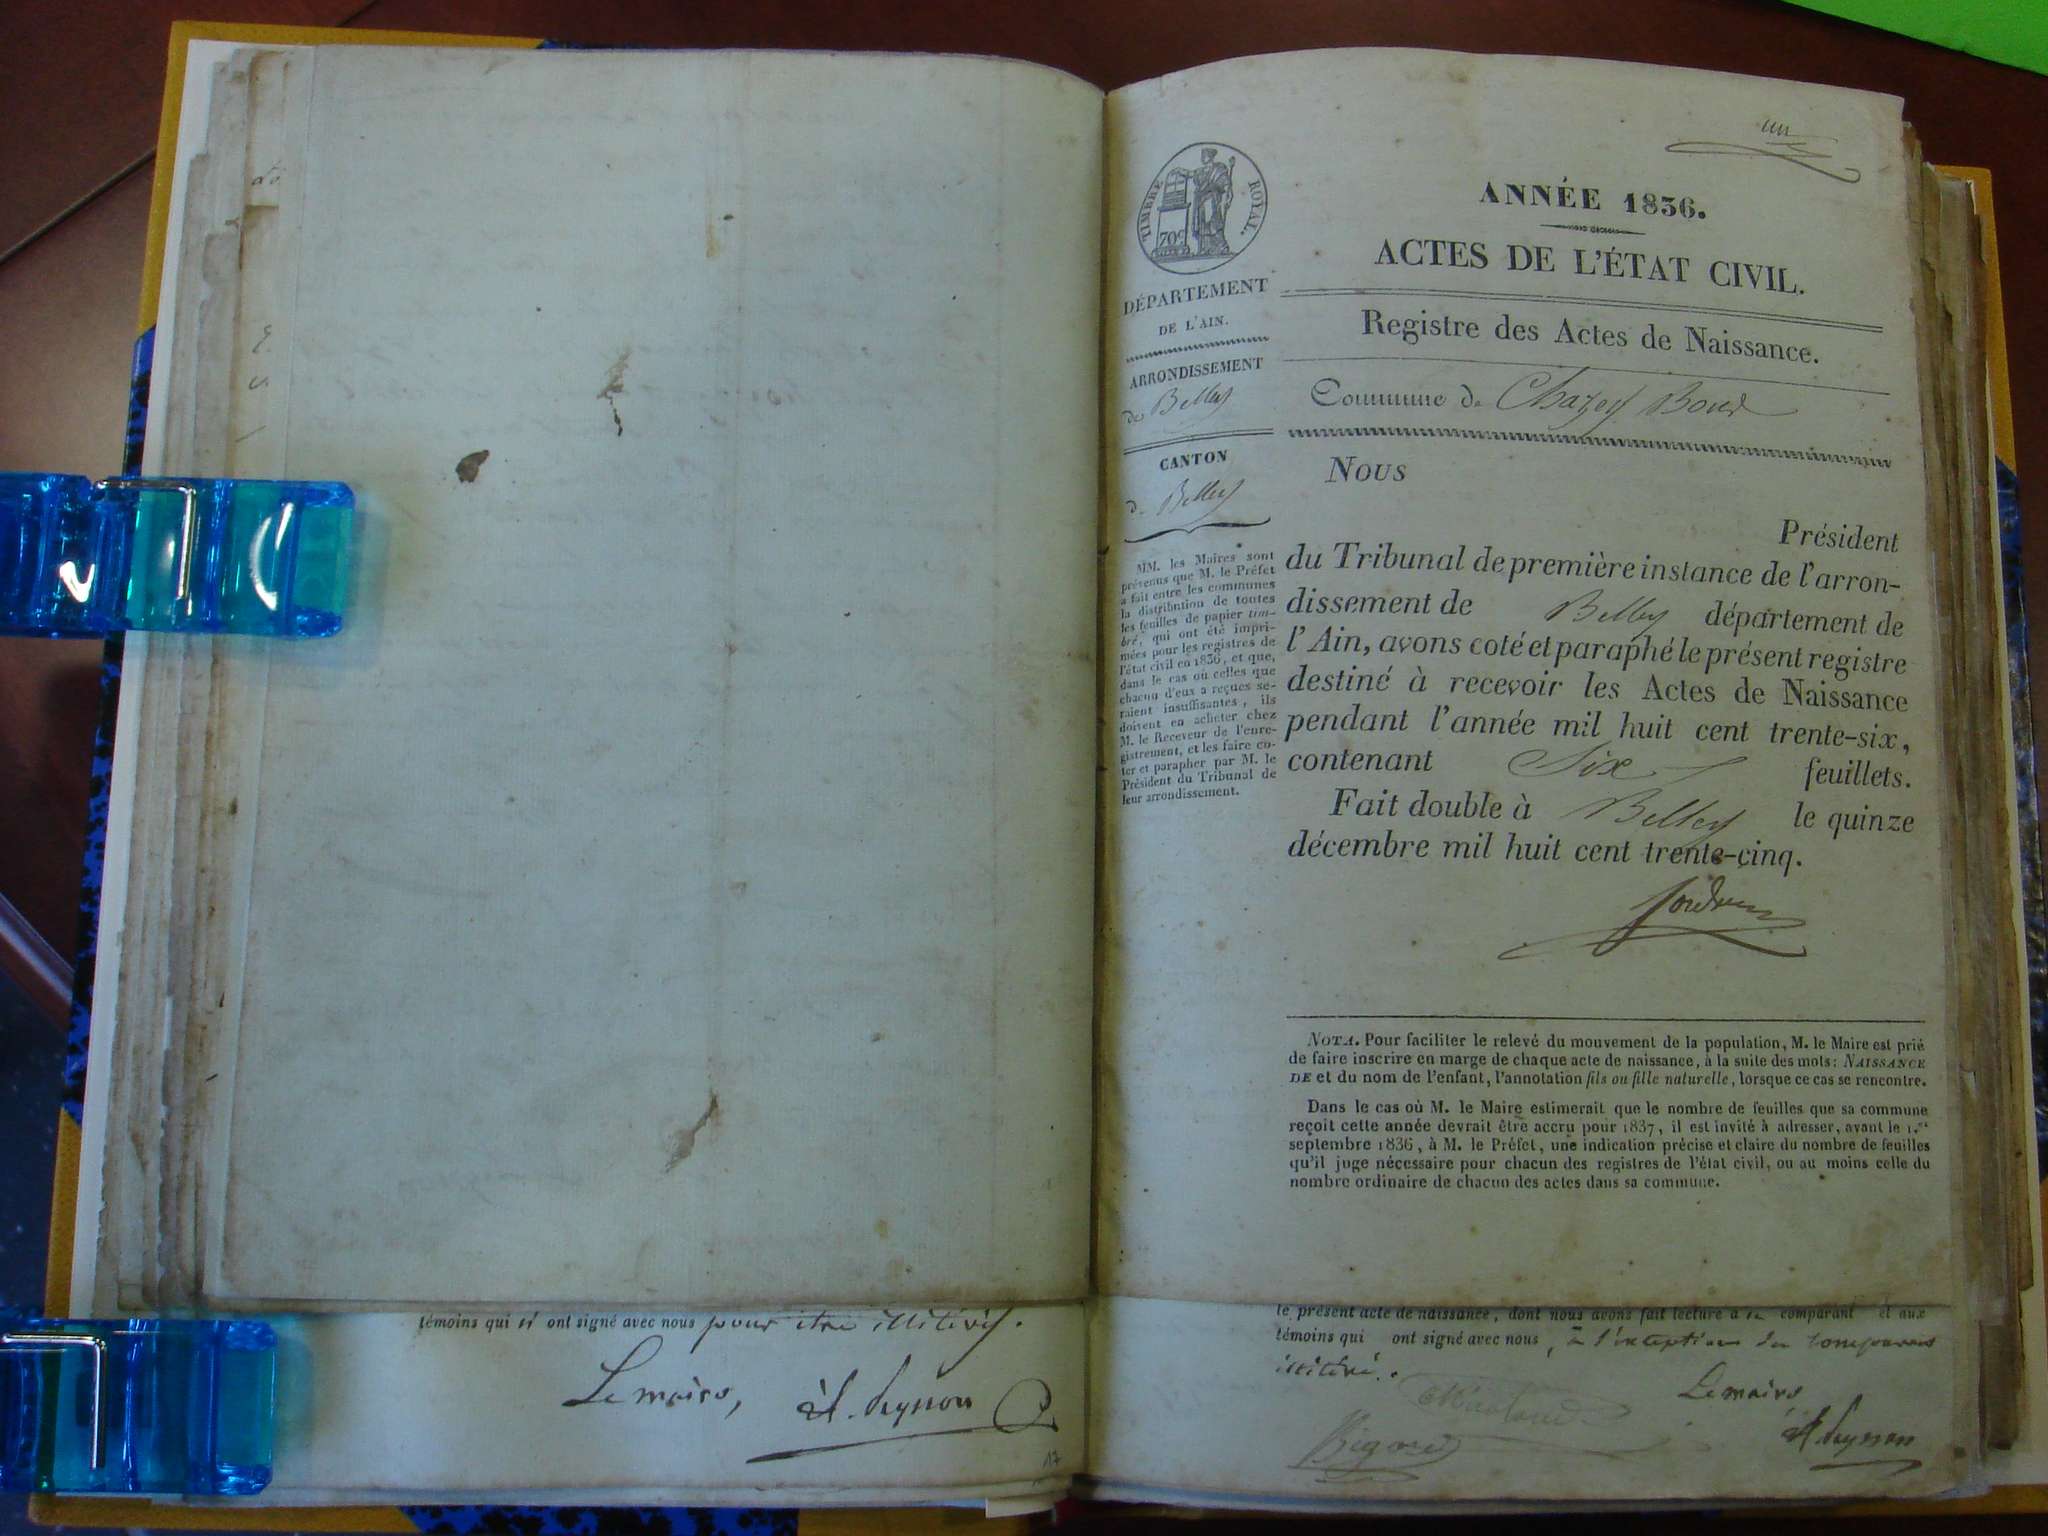 un
TIMBRE ROYAL.
70c
ANNÉE 1836.
ACTES DE L'ÉTAT CIVIL.
Registre des Actes de Naissance.
Commune de Chazey Bons
DÉPARTEMENT
DE L'AIN.
ARRONDISSEMENT
de Belley
CANTON
de Belley
MM. les Maires sont
prévenus que M. le Préfet
a fait entre les communes
la distribution de toutes
les feuilles de papier tim-
bré, qui ont été impri-
mées pour les registres de
l'état civil en 1836, et que,
dans le cas où celles que
chacun d'eux a reçues se-
raient insuffisantes, ils
doivent en acheter chez
M. le Receveur de l'enre-
gistrement, et les faire co-
ter et parapher par M. le
Président du Tribunal de
leur arrondissement.
Nous
Président
du Tribunal de première instance de l'arron-
dissement de Belley département de
l'Ain, avons coté et paraphé le présent registre
destiné à recevoir les Actes de Naissance
pendant l'année mil huit cent trente-six,
contenant Six feuillets.
Fait double à Belley le quinze
décembre mil huit cent trente-cinq.
NOTA. Pour faciliter le relevé du mouvement de la population, M. le Maire est prié
de faire inscrire en marge de chaque acte de naissance, à la suite des mots: NAISSANCE
DE et du nom de l'enfant, l'annotation fils ou fille naturelle, lorsque ce cas se rencontre.
Dans le cas où M. le Maire estimerait que le nombre de feuilles que sa commune
reçoit cette année devrait être accru pour 1837, il est invité à adresser, avant le 1.er
septembre 1836, à M. le Préfet, une indication précise et claire du nombre de feuilles
qu'il juge nécessaire pour chacun des registres de l'état civil, ou au moins celle du
nombre ordinaire de chacun des actes dans sa commune.
témoins qui n' ont signé avec nous pour être illitérés.
Le maire,
17
le présent acte de naissance, dont nous avons fait lecture a comparant et aux
témoins qui ont signé avec nous, à l'exception du comparant
illitéré.
Le maire,